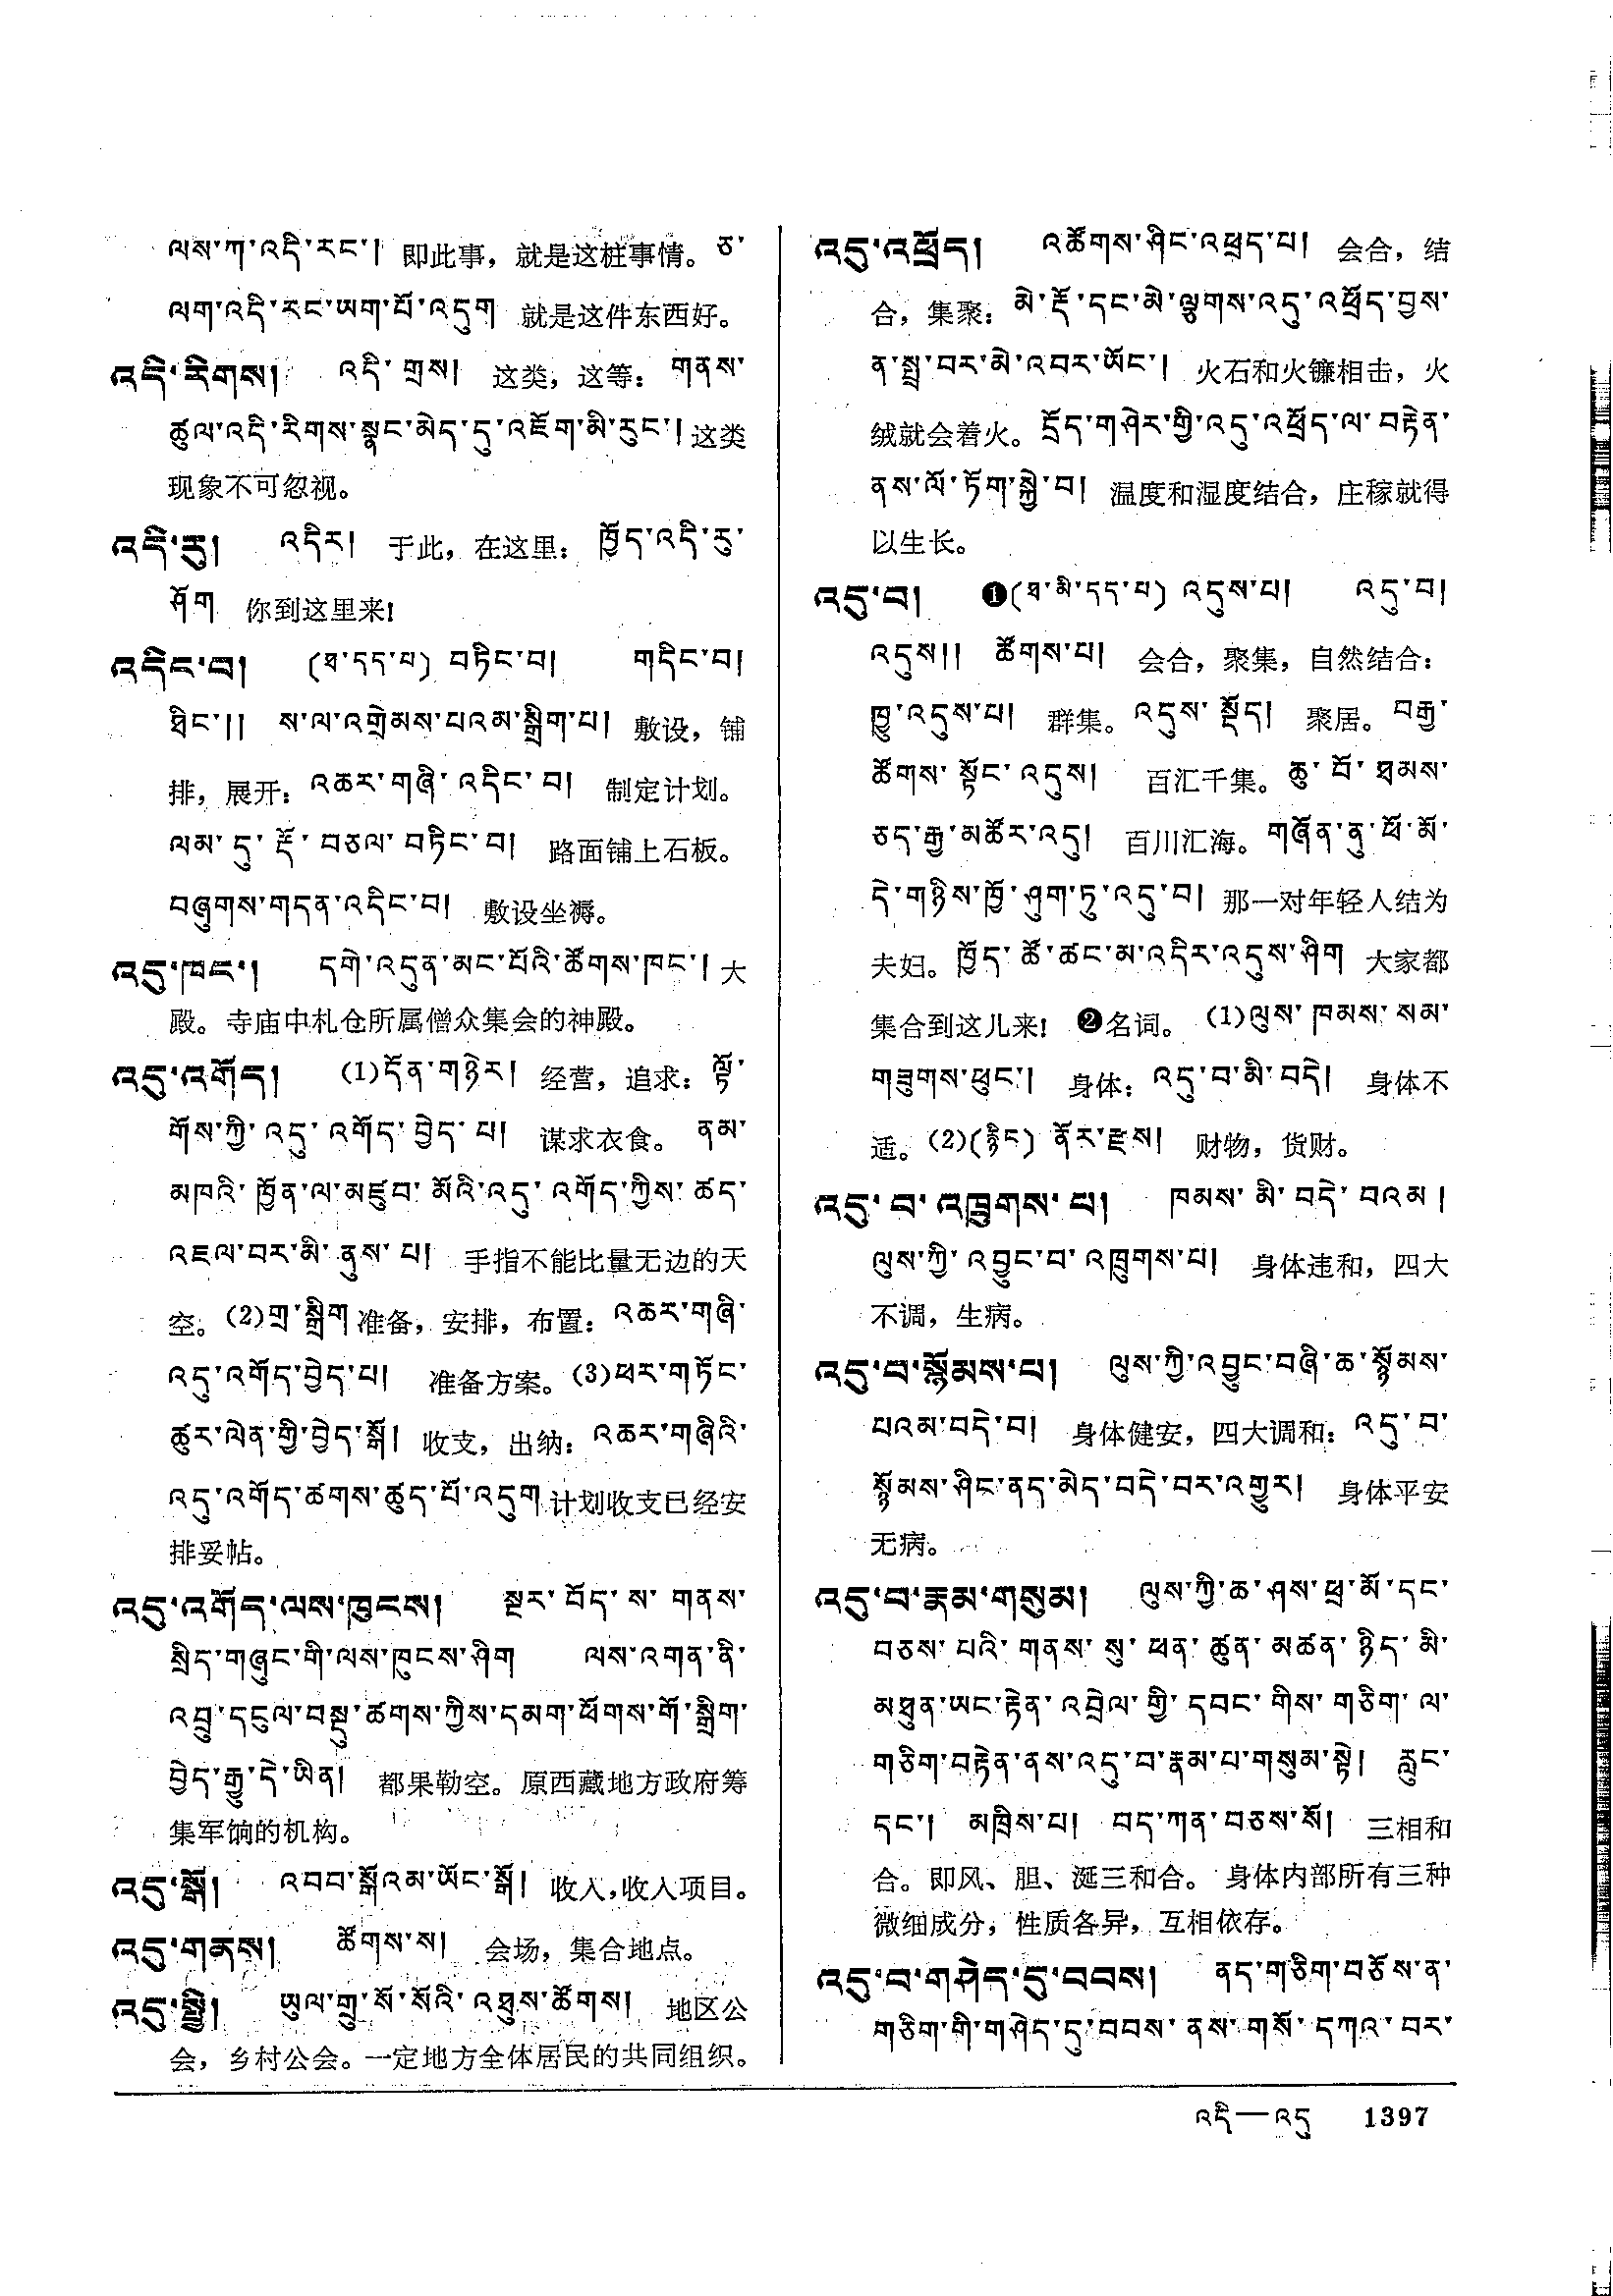 ལས་ཀ་འདི་རང་། 即此事，就是这桩事情。ཅ་
ལག་འདི་རང་ཡག་པོ་འདུག 就是这件东西好。
འདི་རིགས། འདི་གྲས། 这类，这等：གནས་
ཚུལ་འདི་རིགས་སྣང་མེད་དུ་འཇོག་མི་རུང་། 这类
现象不可忽视。
འདི་རུ། འདིར། 于此，在这里：ཁྱོད་འདི་རུ་
ཤོག 你到这里来!
འདིང་བ། (ཐ་དད་པ) བཏིང་བ། གདིང་བ།
ཐིང་།། ས་ལ་འགྲེམས་པའམ་སྒྲིག་པ། 敷设，铺
排，展开：འཆར་གཞི་འདིང་བ། 制定计划。
ལམ་དུ་རྡོ་བཅལ་བཏིང་བ། 路面铺上石板。
བཞུགས་གདན་འདིང་བ། 敷设坐褥。
འདུ་ཁང་། དགེ་འདུན་མང་པོའི་ཚོགས་ཁང་། 大
殿。寺庙中札仓所属僧众集会的神殿。
འདུ་འགོད། (1)དོན་གཉེར། 经营，追求：ལྟོ་
གོས་ཀྱི་འདུ་འགོད་བྱེད་པ། 谋求衣食。ནམ་
མཁའི་ཁྱོན་ལ་མཛུབ་མོའི་འདུ་འགོད་ཀྱིས་ཚད་
འཇལ་བར་མི་ནུས་པ། 手指不能比量无边的天
空。(2)གྲ་སྒྲིག 准备，安排，布置：འཆར་གཞི་
འདུ་འགོད་བྱེད་པ། 准备方案。(3)ཕར་གཏོང་
ཚུར་ལེན་གྱི་བྱེད་སྒོ། 收支，出纳：འཆར་གཞིའི་
འདུ་འགོད་ཚགས་ཚུད་པོ་འདུག 计划收支已经安
排妥帖。
འདུ་འགོད་ལས་ཁུངས། སྔར་བོད་ས་གནས་
སྲིད་གཞུང་གི་ལས་ཁུངས་ཤིག ལས་འགན་ནི་
འབྲུ་དངུལ་བསྡུ་ཚགས་ཀྱིས་དམག་ཕོགས་གོ་སྒྲིག་
བྱེད་རྒྱུ་དེ་ཡིན། 都果勒空。原西藏地方政府筹
集军饷的机构。
འདུ་སྒོ། འབབ་སྒོའམ་ཡོང་སྒོ། 收入，收入项目。
འདུ་གནས། ཚོགས་ས། 会场，集合地点。
འདུ་སྤྱི། ཡུལ་གྲུ་སོ་སོའི་འཐུས་ཚོགས། 地区公
会，乡村公会。一定地方全体居民的共同组织。
འདུ་འཕྲོད། འཚོགས་ཤིང་འཕྲད་པ། 会合，结
合，集聚：མེ་རྡོ་དང་མེ་ལྕགས་འདུ་འཕྲོད་བྱས་
ན་སྤྲ་བར་མེ་འབར་ཡོང་། 火石和火镰相击，火
绒就会着火。དྲོད་གཤེར་གྱི་འདུ་འཕྲོད་ལ་བརྟེན་
ནས་ལོ་ཏོག་སྐྱེ་བ། 温度和湿度结合，庄稼就得
以生长。
འདུ་བ། ❶(ཐ་མི་དད་པ) འདུས་པ། འདུ་བ།
འདུས།། ཚོགས་པ། 会合，聚集，自然结合：
ཁྱུ་འདུས་པ། 群集。འདུས་སྡོད། 聚居。བརྒྱ་
ཚོགས་སྟོང་འདུས། 百汇千集。ཆུ་བོ་ཐམས་
ཅད་རྒྱ་མཚོར་འདུ། 百川汇海。གཞོན་ནུ་ཕོ་མོ་
དེ་གཉིས་ཁྱོ་ཤུག་ཏུ་འདུ་བ། 那一对年轻人结为
夫妇。ཁྱོད་ཚོ་ཚང་མ་འདིར་འདུས་ཤིག 大家都
集合到这儿来! ❷名词。(1)ལུས་ཁམས་སམ་
གཟུགས་ཕུང་། 身体：འདུ་བ་མི་བདེ། 身体不
适。(2)(རྙིང) ནོར་རྫས། 财物，货财。
འདུ་བ་འཁྲུགས་པ། ཁམས་མི་བདེ་བའམ།
ལུས་ཀྱི་འབྱུང་བ་འཁྲུགས་པ། 身体违和，四大
不调，生病。
འདུ་བ་སྙོམས་པ། ལུས་ཀྱི་འབྱུང་བཞི་ཆ་སྙོམས་
པའམ་བདེ་བ། 身体健安，四大调和：འདུ་བ་
སྙོམས་ཤིང་ནད་མེད་བདེ་བར་འགྱུར། 身体平安
无病。
འདུ་བ་རྣམ་གསུམ། ལུས་ཀྱི་ཆ་ཤས་ཕྲ་མོ་དང་
བཅས་པའི་གནས་སུ་ཕན་ཚུན་མཚན་ཉིད་མི་
མཐུན་ཡང་རྟེན་འབྲེལ་གྱི་དབང་གིས་གཅིག་ལ་
གཅིག་བརྟེན་ནས་འདུ་བ་རྣམ་པ་གསུམ་སྟེ། རླུང་
དང་། མཁྲིས་པ། བད་ཀན་བཅས་སོ། 三相和
合。即风、胆、涎三和合。身体内部所有三种
微细成分，性质各异，互相依存。
འདུ་བ་གཤེད་དུ་བབས། ནད་གཅིག་བཅོས་ན་
གཅིག་གི་གཤེད་དུ་བབས་ནས་གསོ་དཀའ་བར་
འདི—འདུ 1397